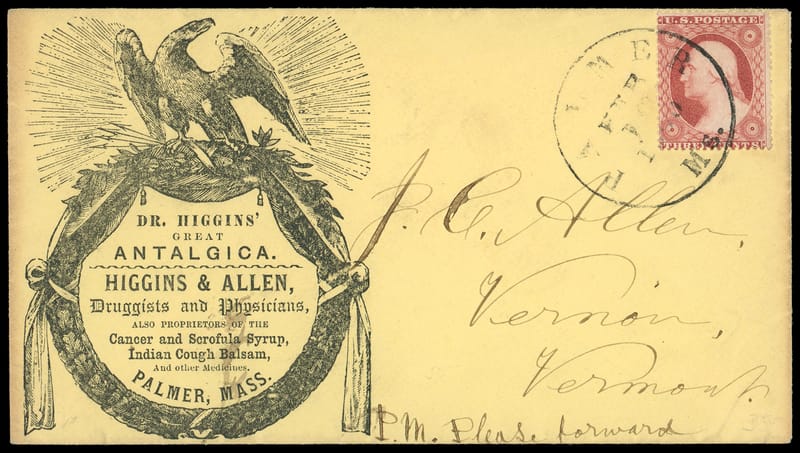 DR. HIGGINS'
GREAT
ANTALGICA.
HIGGINS & ALLEN,
Druggists and Physicians,
ALSO PROPRIETORS OF THE
Cancer and Scrofula Syrup,
Indian Cough Balsam,
And other Medicines.
PALMER, MASS.
U.S. POSTAGE
THREE CENTS
LMER Ms.
FEB
J. C. Allen,
Vernon,
Vermont.
P.M. Please forward